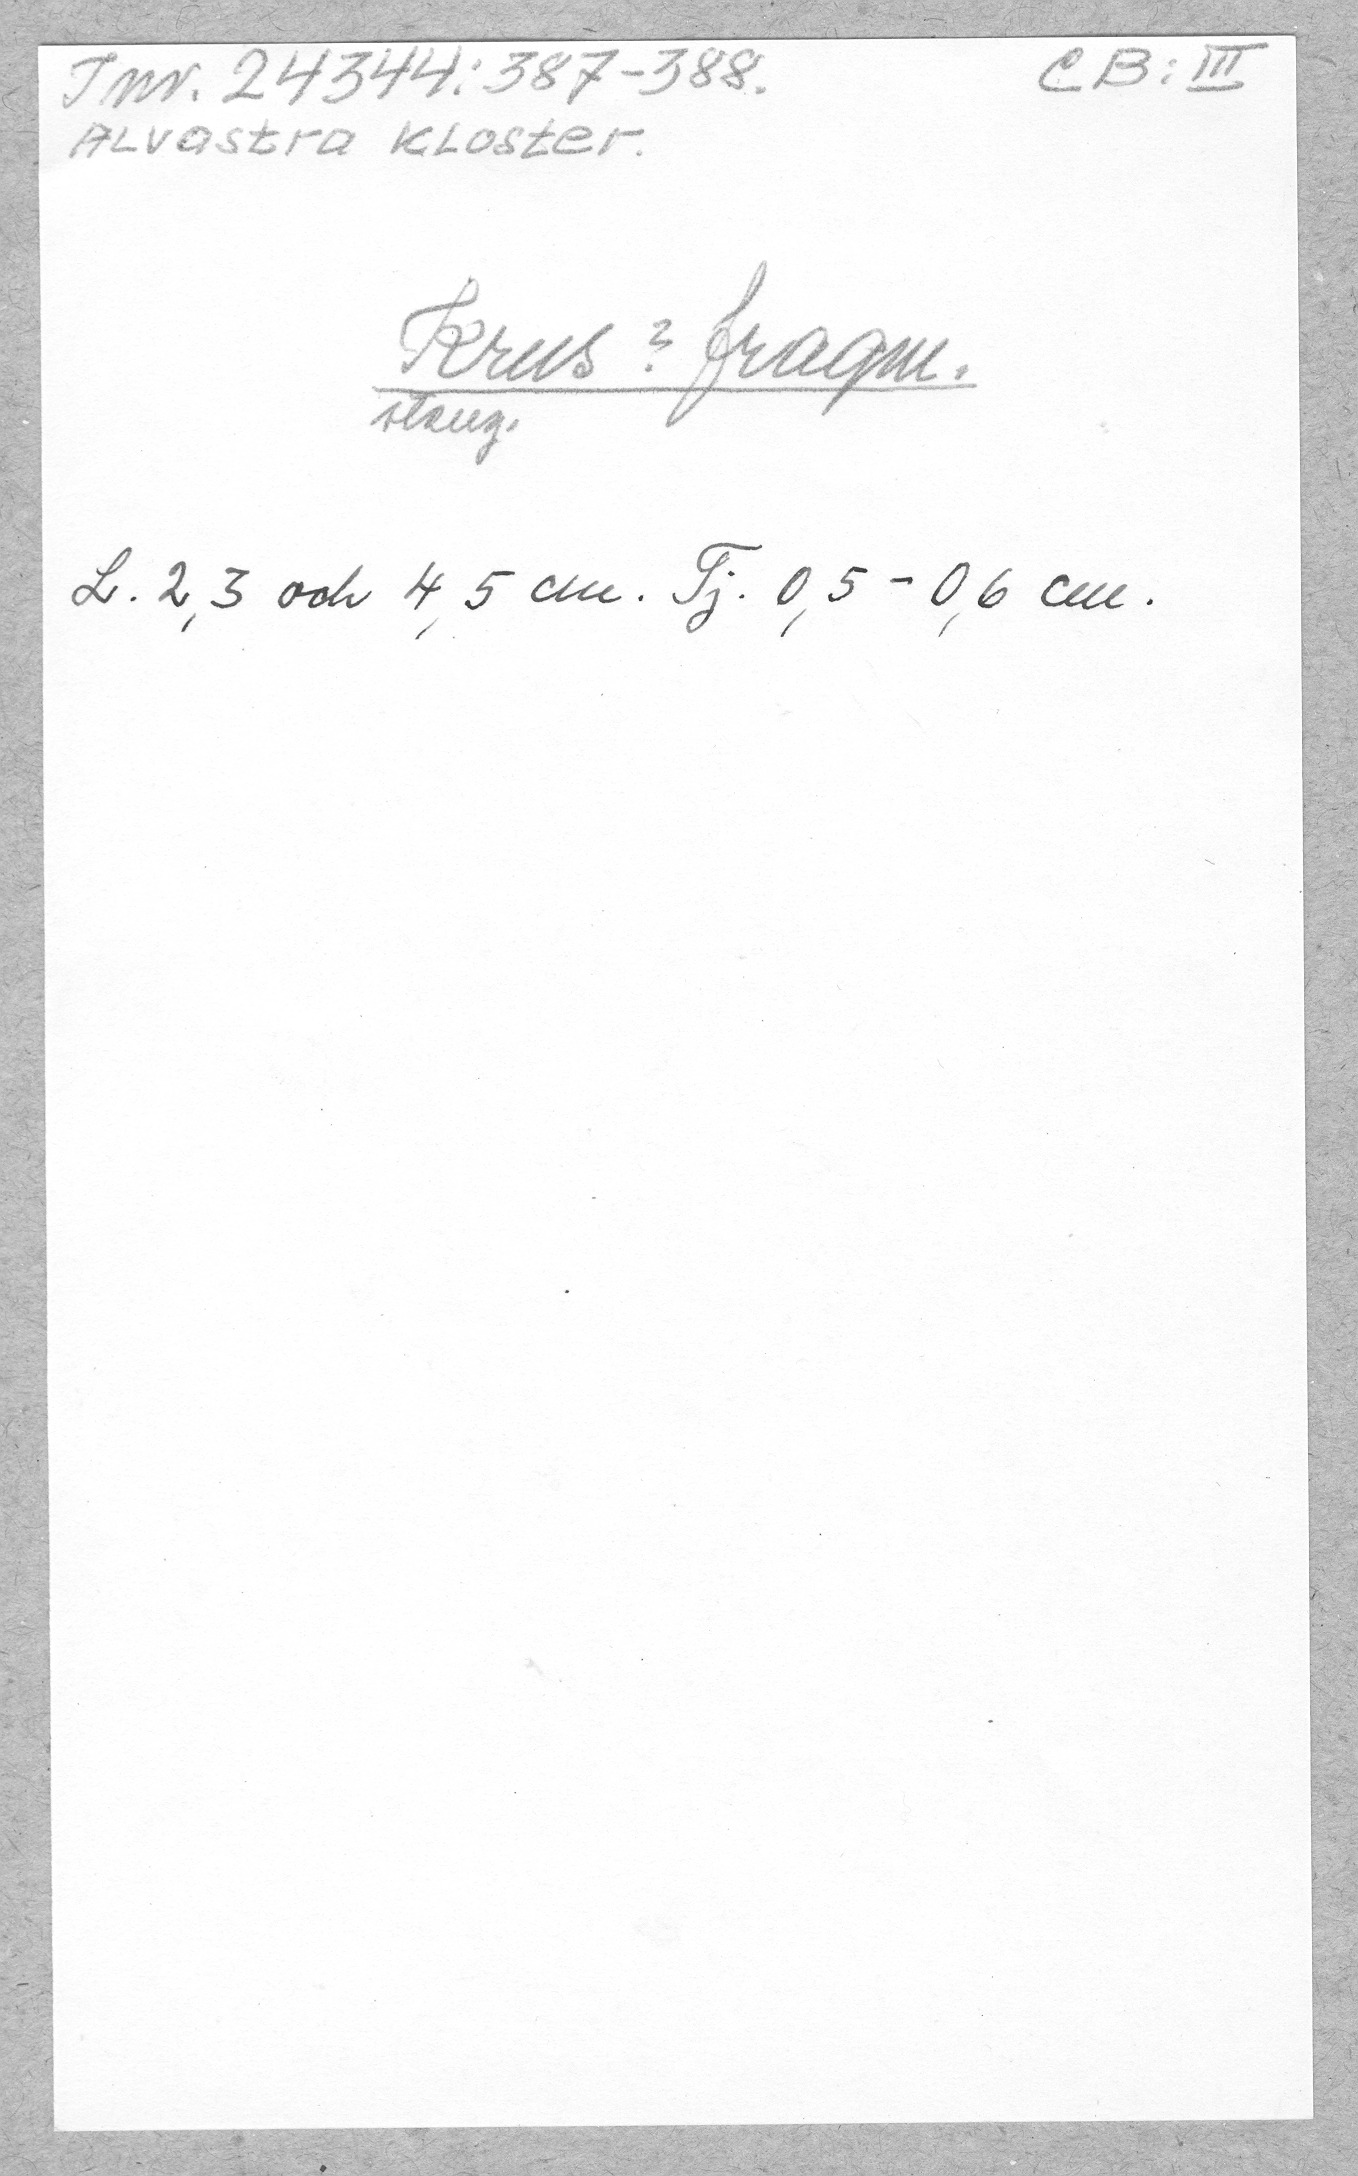 Inv. 24344:387-388. CB:III
ALvastra KLoster.
Krus? fragm.
steng.
L. 2,3 och 4,5 cm. Tj. 0,5-0,6 cm.